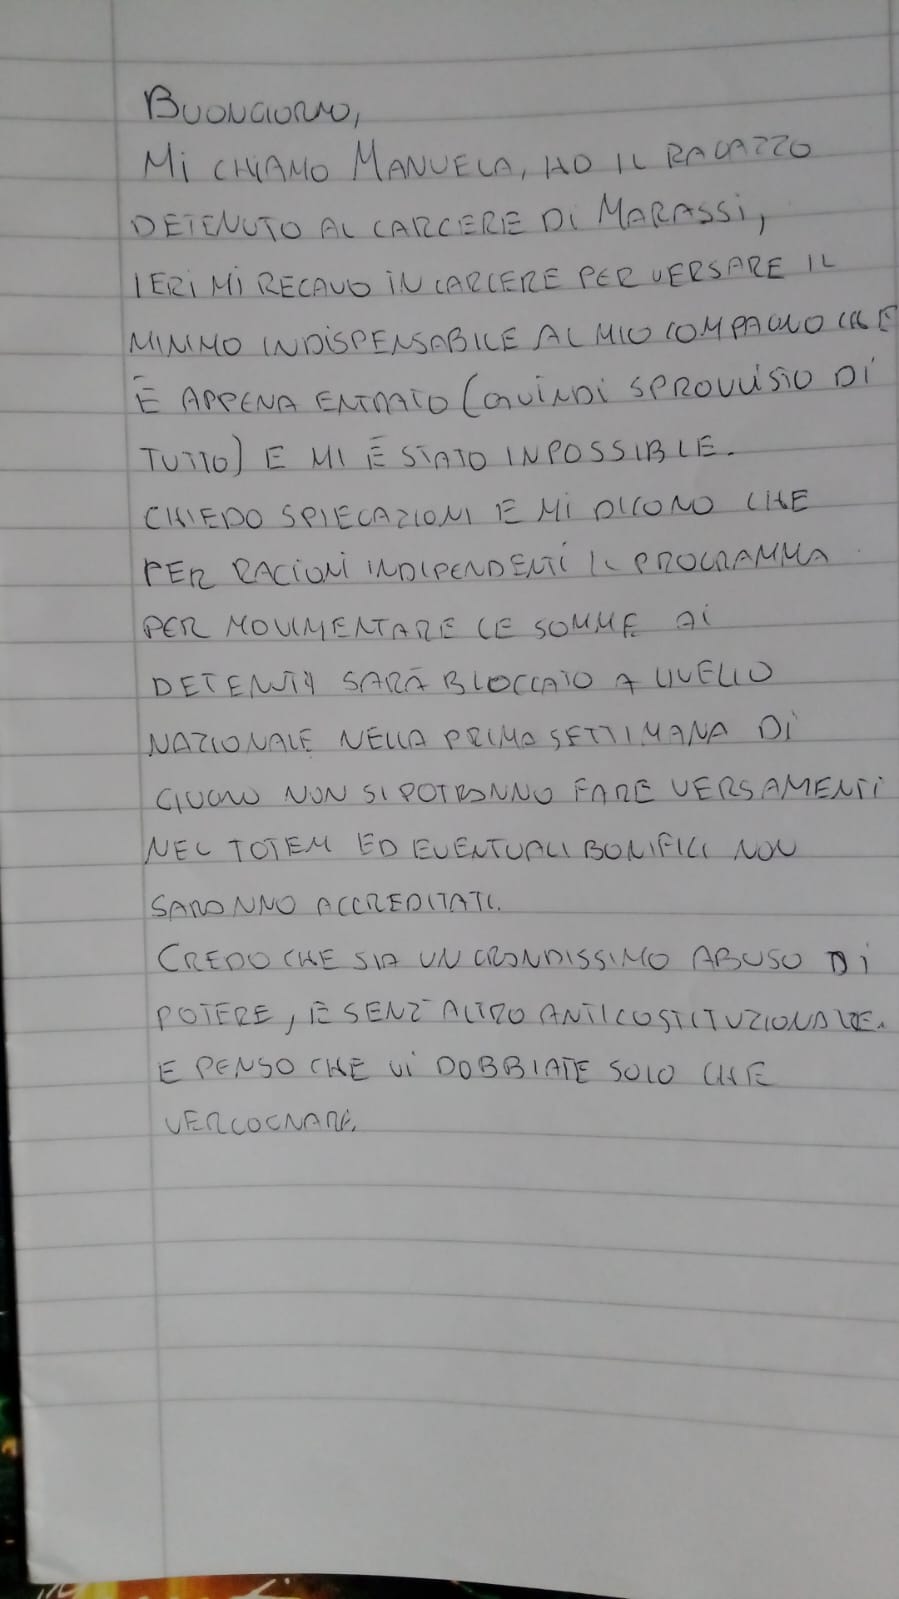 BUONGIORNO,
MI CHIAMO MANUELA, HO IL RAGAZZO
DETENUTO AL CARCERE DI MARASSI,
IERI MI RECAVO IN CARCERE PER VERSARE IL
MINIMO INDISPENSABILE AL MIO COMPAGNO CHE
È APPENA ENTRATO (QUINDI SPROVVISTO DI
TUTTO) E MI È STATO INPOSSIBLE.
CHIEDO SPIEGAZIONI E MI DICONO CHE
PER RAGIONI INDIPENDENTI IL PROGRAMMA
PER MOVIMENTARE LE SOMME AI
DETENUTI SARÀ BLOCCATO A LIVELLO
NAZIONALE NELLA PRIMA SETTIMANA DI
GIUGNO NON SI POTRANNO FARE VERSAMENTI
NEL TOTEM ED EVENTUALI BONIFICI NON
SARANNO ACCREDITATI.
CREDO CHE SIA UN GRANDISSIMO ABUSO DI
POTERE, E SENZ'ALTRO ANTICOSTITUZIONALE.
E PENSO CHE VI DOBBIATE SOLO CHE
VERGOGNARE.